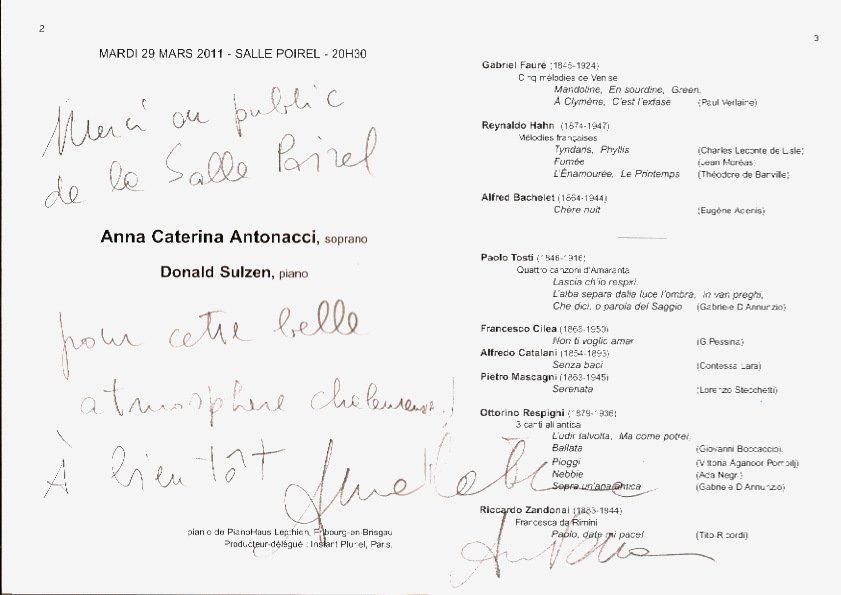 2
MARDI 29 MARS 2011 - SALLE POIREL - 20H30
Merci au public
de la Salle Poirel
Anna Caterina Antonacci, soprano
Donald Sulzen, piano
pour cette belle
atmosphere chaleureuse !
À bientôt
piano de PianoHaus Lepthien, Fribourg-en-Brisgau
Producteur-délégué : Instant Pluriel, Paris.
3
Gabriel Fauré (1845-1924)
Cinq mélodies de Venise
Mandoline, En sourdine, Green,
À Clymène, C'est l'extase (Paul Verlaine)
Reynaldo Hahn (1874-1947)
Mélodies françaises
Tyndaris, Phyllis (Charles Leconte de Lisle)
Fumée (Jean Moréas)
L'Énamourée, Le Printemps (Théodore de Banville)
Alfred Bachelet (1864-1944)
Chère nuit (Eugène Adenis)
Paolo Tosti (1846-1916)
Quattro canzoni d'Amaranta
Lascia ch'io respiri,
L'alba separa dalla luce l'ombra, In van preghi,
Che dici, o parola del Saggio (Gabriele D'Annunzio)
Francesco Cilea (1866-1950)
Non ti voglio amar (G.Pessina)
Alfredo Catalani (1854-1893)
Senza baci (Contessa Lara)
Pietro Mascagni (1863-1945)
Serenata (Lorenzo Stecchetti)
Ottorino Respighi (1879-1936)
3 canti all'antica
L'udir talvolta, Ma come potrei,
Ballata (Giovanni Boccaccio)
Pioggi (Vittoria Aganoor Pompilj)
Nebbie (Ada Negri)
Sopra un'aria antica (Gabriele D'Annunzio)
Riccardo Zandonai (1883-1944)
Francesca da Rimini
Paolo, date mi pace! (Tito Ricordi)
Anna Cate
Antona